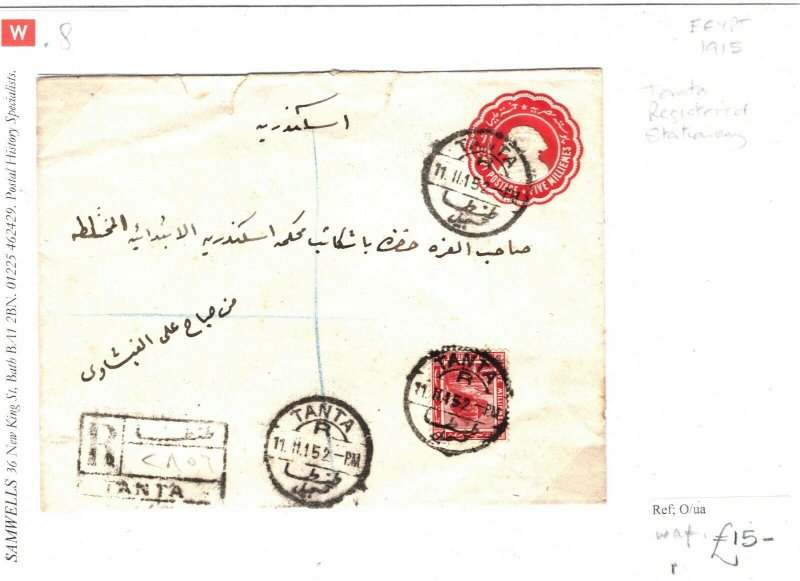 W
.8
EGYPT
1915
Tanta
Registered
Stationery
SAMWELLS 36 New King St. Bath BA1 2BN. 01225 462429. Postal History Specialists.
اسكندريه
POSTAGE FIVE MILLIEMES
TANTA
R
11.II.15 2-PM
طنطا
تسجيل
صاحب العزه حضرة باشكاتب محكمة اسكندريه الابتدائيه المختلطه
من صباح على
TANTA
R
11.II.15 2-PM
طنطا
TANTA
R
11.II.15 2-PM
طنطا
تسجيل
R
طنطا
٢٨٥٦
TANTA
Ref; O/ua
£15-